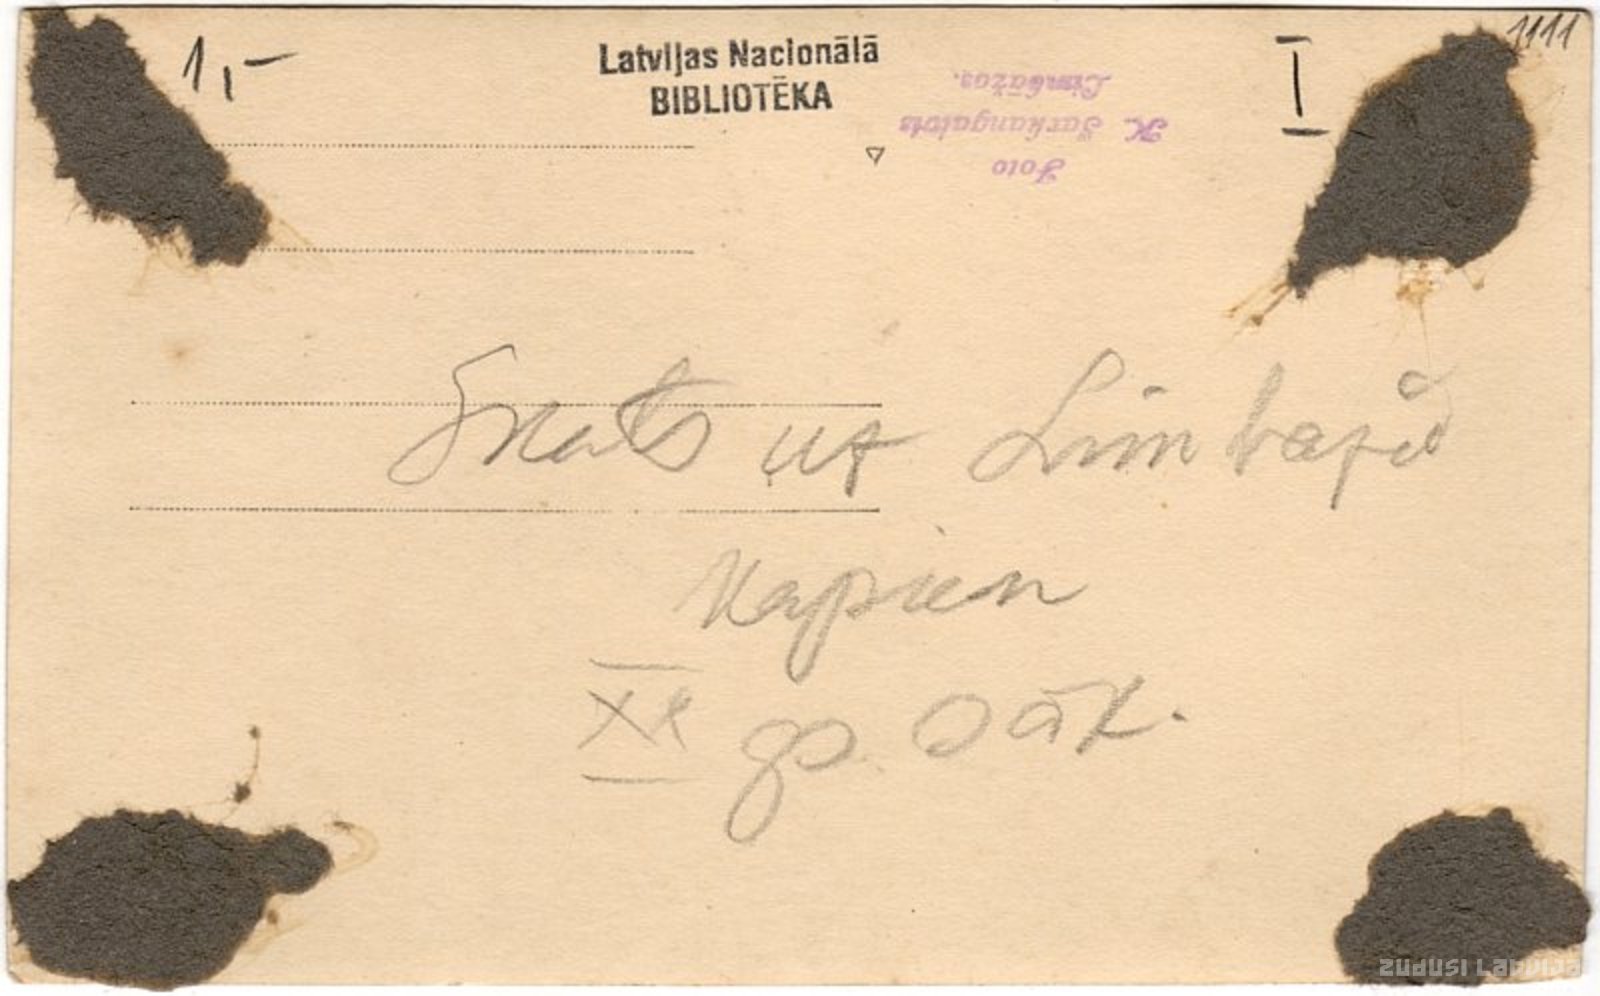 1,-
Latvijas Nacionālā
BIBLIOTĒKA
I
1111
Foto
K. Sarkangalvis
Limbažos.
Skats uz Limbažu
Kapiem
XX go. sāk.
zudusi Latvija